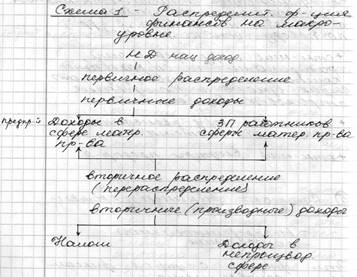 Схема 1 - Распределит. ф-ция
финансов на макро-
уровне.
НД нац доход.
первичное распределение
первичные доходы
предпр-й Доходы в ЗП работников
сфере матер. сферы матер пр-ва
пр-ва
вторичное распределение
(перераспределение)
вторичные (производные) доходы
Налоги Доходы в
непроизвод.
сфере